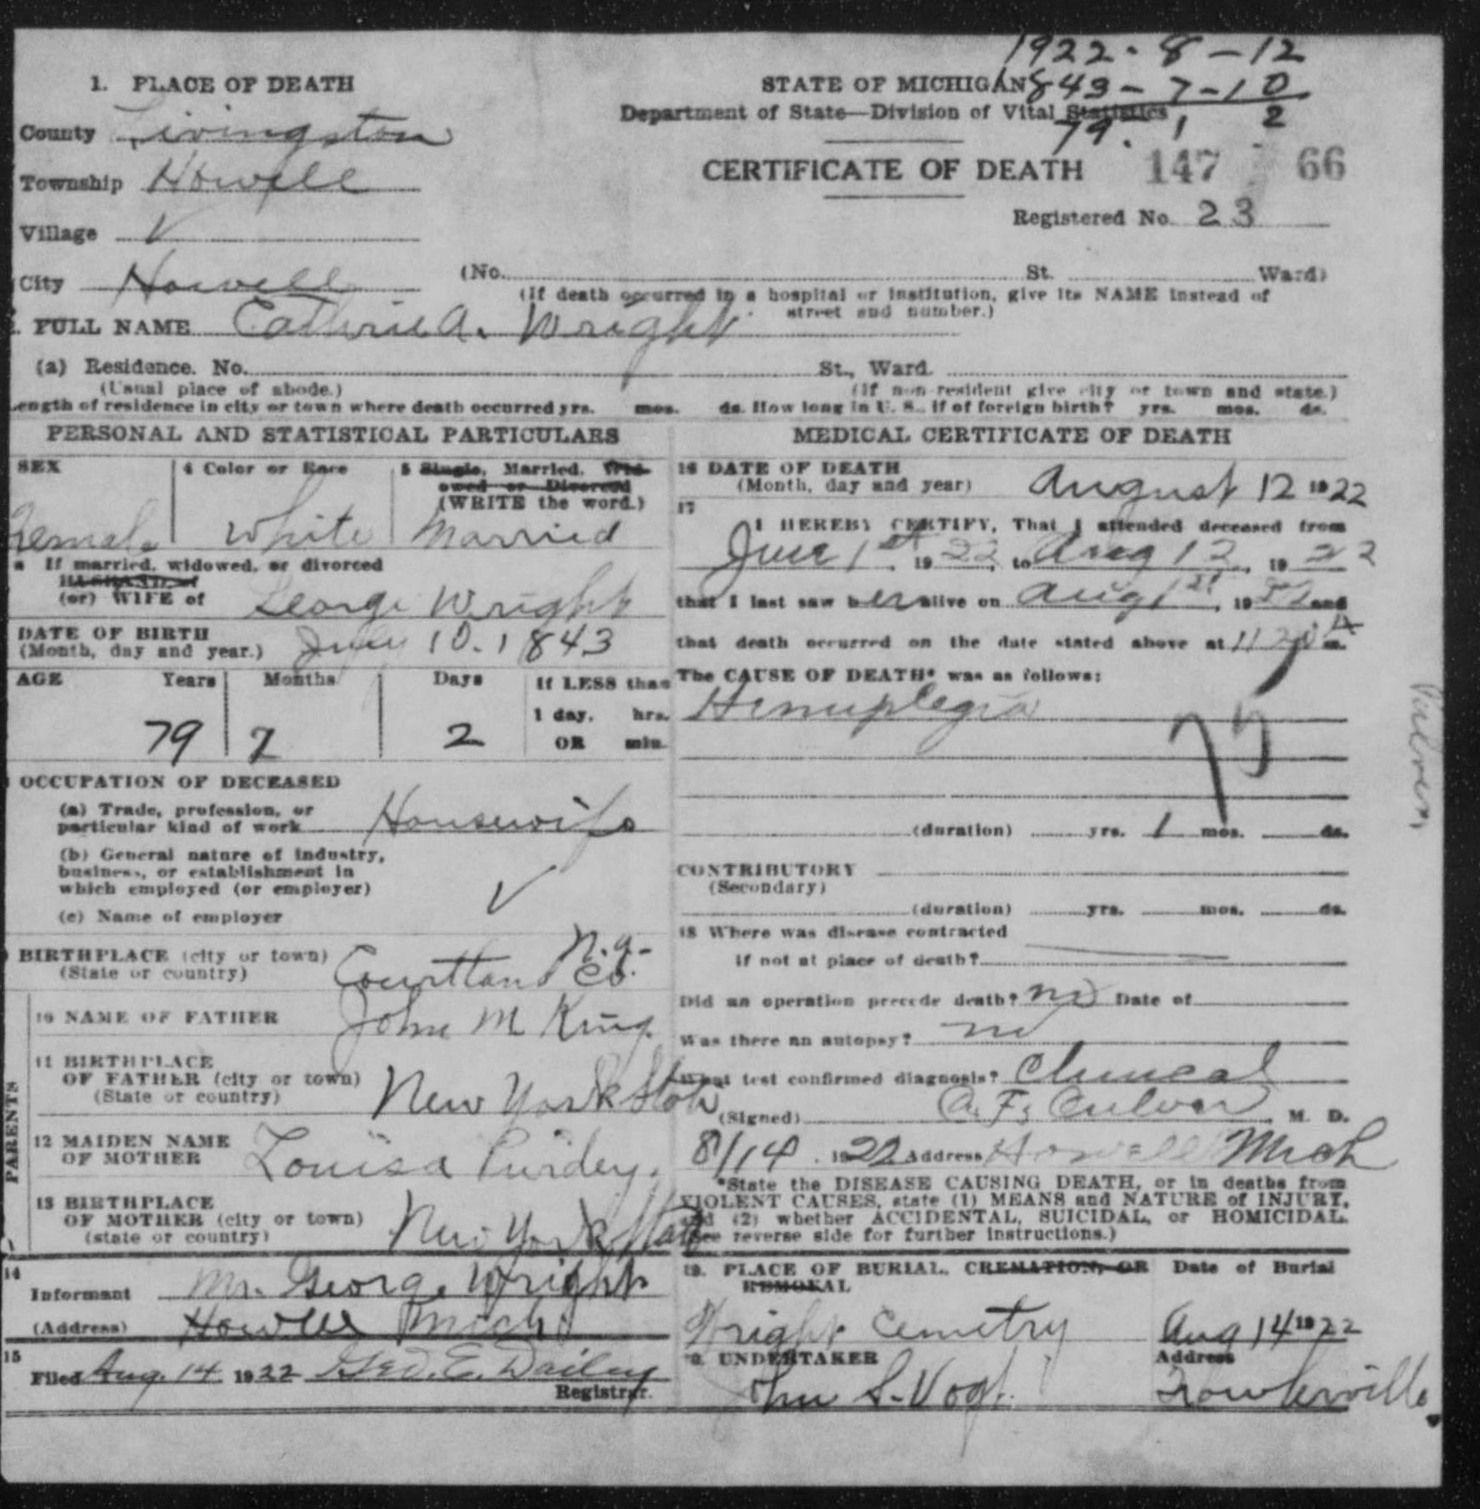 1922 - 8 - 12
1. PLACE OF DEATH
STATE OF MICHIGAN 1843 - 7 - 10
Department of State—Division of Vital Statistics
79. 1 2
County Livingston
Township Howell
CERTIFICATE OF DEATH 147 66
Registered No. 23
Village V
City Howell (No. St. Ward)
(If death occurred in a hospital or institution, give its NAME instead of street and number.)
FULL NAME A. Wright
(a) Residence. No. St., Ward.
(Usual place of abode.) (If non-resident give city or town and state.)
Length of residence in city or town where death occurred yrs. mos. ds. How long in U. S., if of foreign birth? yrs. mos. ds.
PERSONAL AND STATISTICAL PARTICULARS
SEX 4 Color or Race 5 Single, Married, Widowed or Divorced
(WRITE the word.)
Female White Married
a If married, widowed, or divorced
HUSBAND of
(or) WIFE of George Wright
DATE OF BIRTH
(Month, day and year.) July 10. 1843
AGE Years Months Days If LESS than
1 day, hrs.
OR min.
79 1 2
OCCUPATION OF DECEASED
(a) Trade, profession, or
particular kind of work Housewife
(b) General nature of industry,
business, or establishment in
which employed (or employer)
(c) Name of employer
BIRTHPLACE (city or town)
(State or country) Courtland Co. N.y.
PARENTS
10 NAME OF FATHER John M King
11 BIRTHPLACE
OF FATHER (city or town)
(State or country) New York State
12 MAIDEN NAME
OF MOTHER Louisa Purdey.
13 BIRTHPLACE
OF MOTHER (city or town)
(state or country) New York State
14
Informant Mr. George Wright
(Address) Howell Mich
15
Filed Aug. 14 1922 Geo. E. Dailey
Registrar.
MEDICAL CERTIFICATE OF DEATH
16 DATE OF DEATH
(Month, day and year) August 12 1922
17
I HEREBY CERTIFY, That I attended deceased from
June 1st, 1922, to Aug 12, 1922
that I last saw her alive on Aug 1st, 1922 and
that death occurred on the date stated above at 11 20 m.
The CAUSE OF DEATH* was as follows:
Hemiplegia
75
(duration) yrs. 1 mos. ds.
CONTRIBUTORY
(Secondary)
(duration) yrs. mos. ds.
18 Where was disease contracted
if not at place of death?
Did an operation precede death? no Date of
Was there an autopsy? no
What test confirmed diagnosis? Clinical
(Signed) C. F. Culver M. D.
8/14, 1922 Address Howell Mich
*State the DISEASE CAUSING DEATH, or in deaths from
VIOLENT CAUSES, state (1) MEANS and NATURE of INJURY,
and (2) whether ACCIDENTAL, SUICIDAL, or HOMICIDAL.
(See reverse side for further instructions.)
19. PLACE OF BURIAL, CREMATION, OR REMOVAL Date of Burial
Wright Cemetry Aug 14 1922
20. UNDERTAKER Address
John S. Vogt Fowlerville